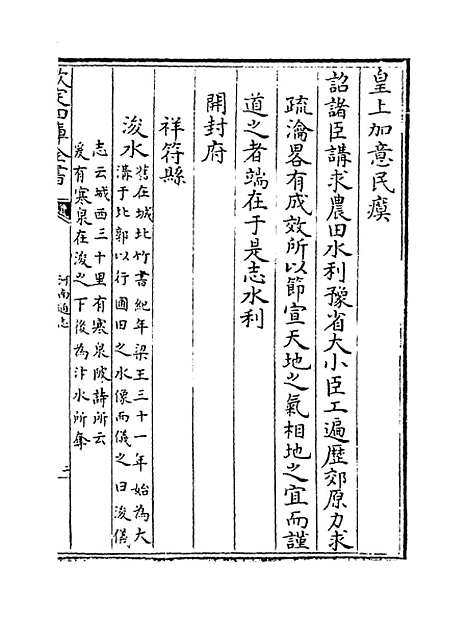 皇上加意民瘼
詔諸臣講求農田水利豫省大小臣工遍歷郊原力求
疏瀹畧有成效所以節宣天地之氣相地之宜而謹
道之者端在于是志水利
開封府
祥符縣
浚水舊在城北竹書紀年梁王三十一年始為大
溝于北郭以行圃田之水像而儀之曰浚儀
志云城西三十里有寒泉陂詩所云
爰有寒泉在浚之下後為汴水所奪
欽定四庫全書
河南通志
二